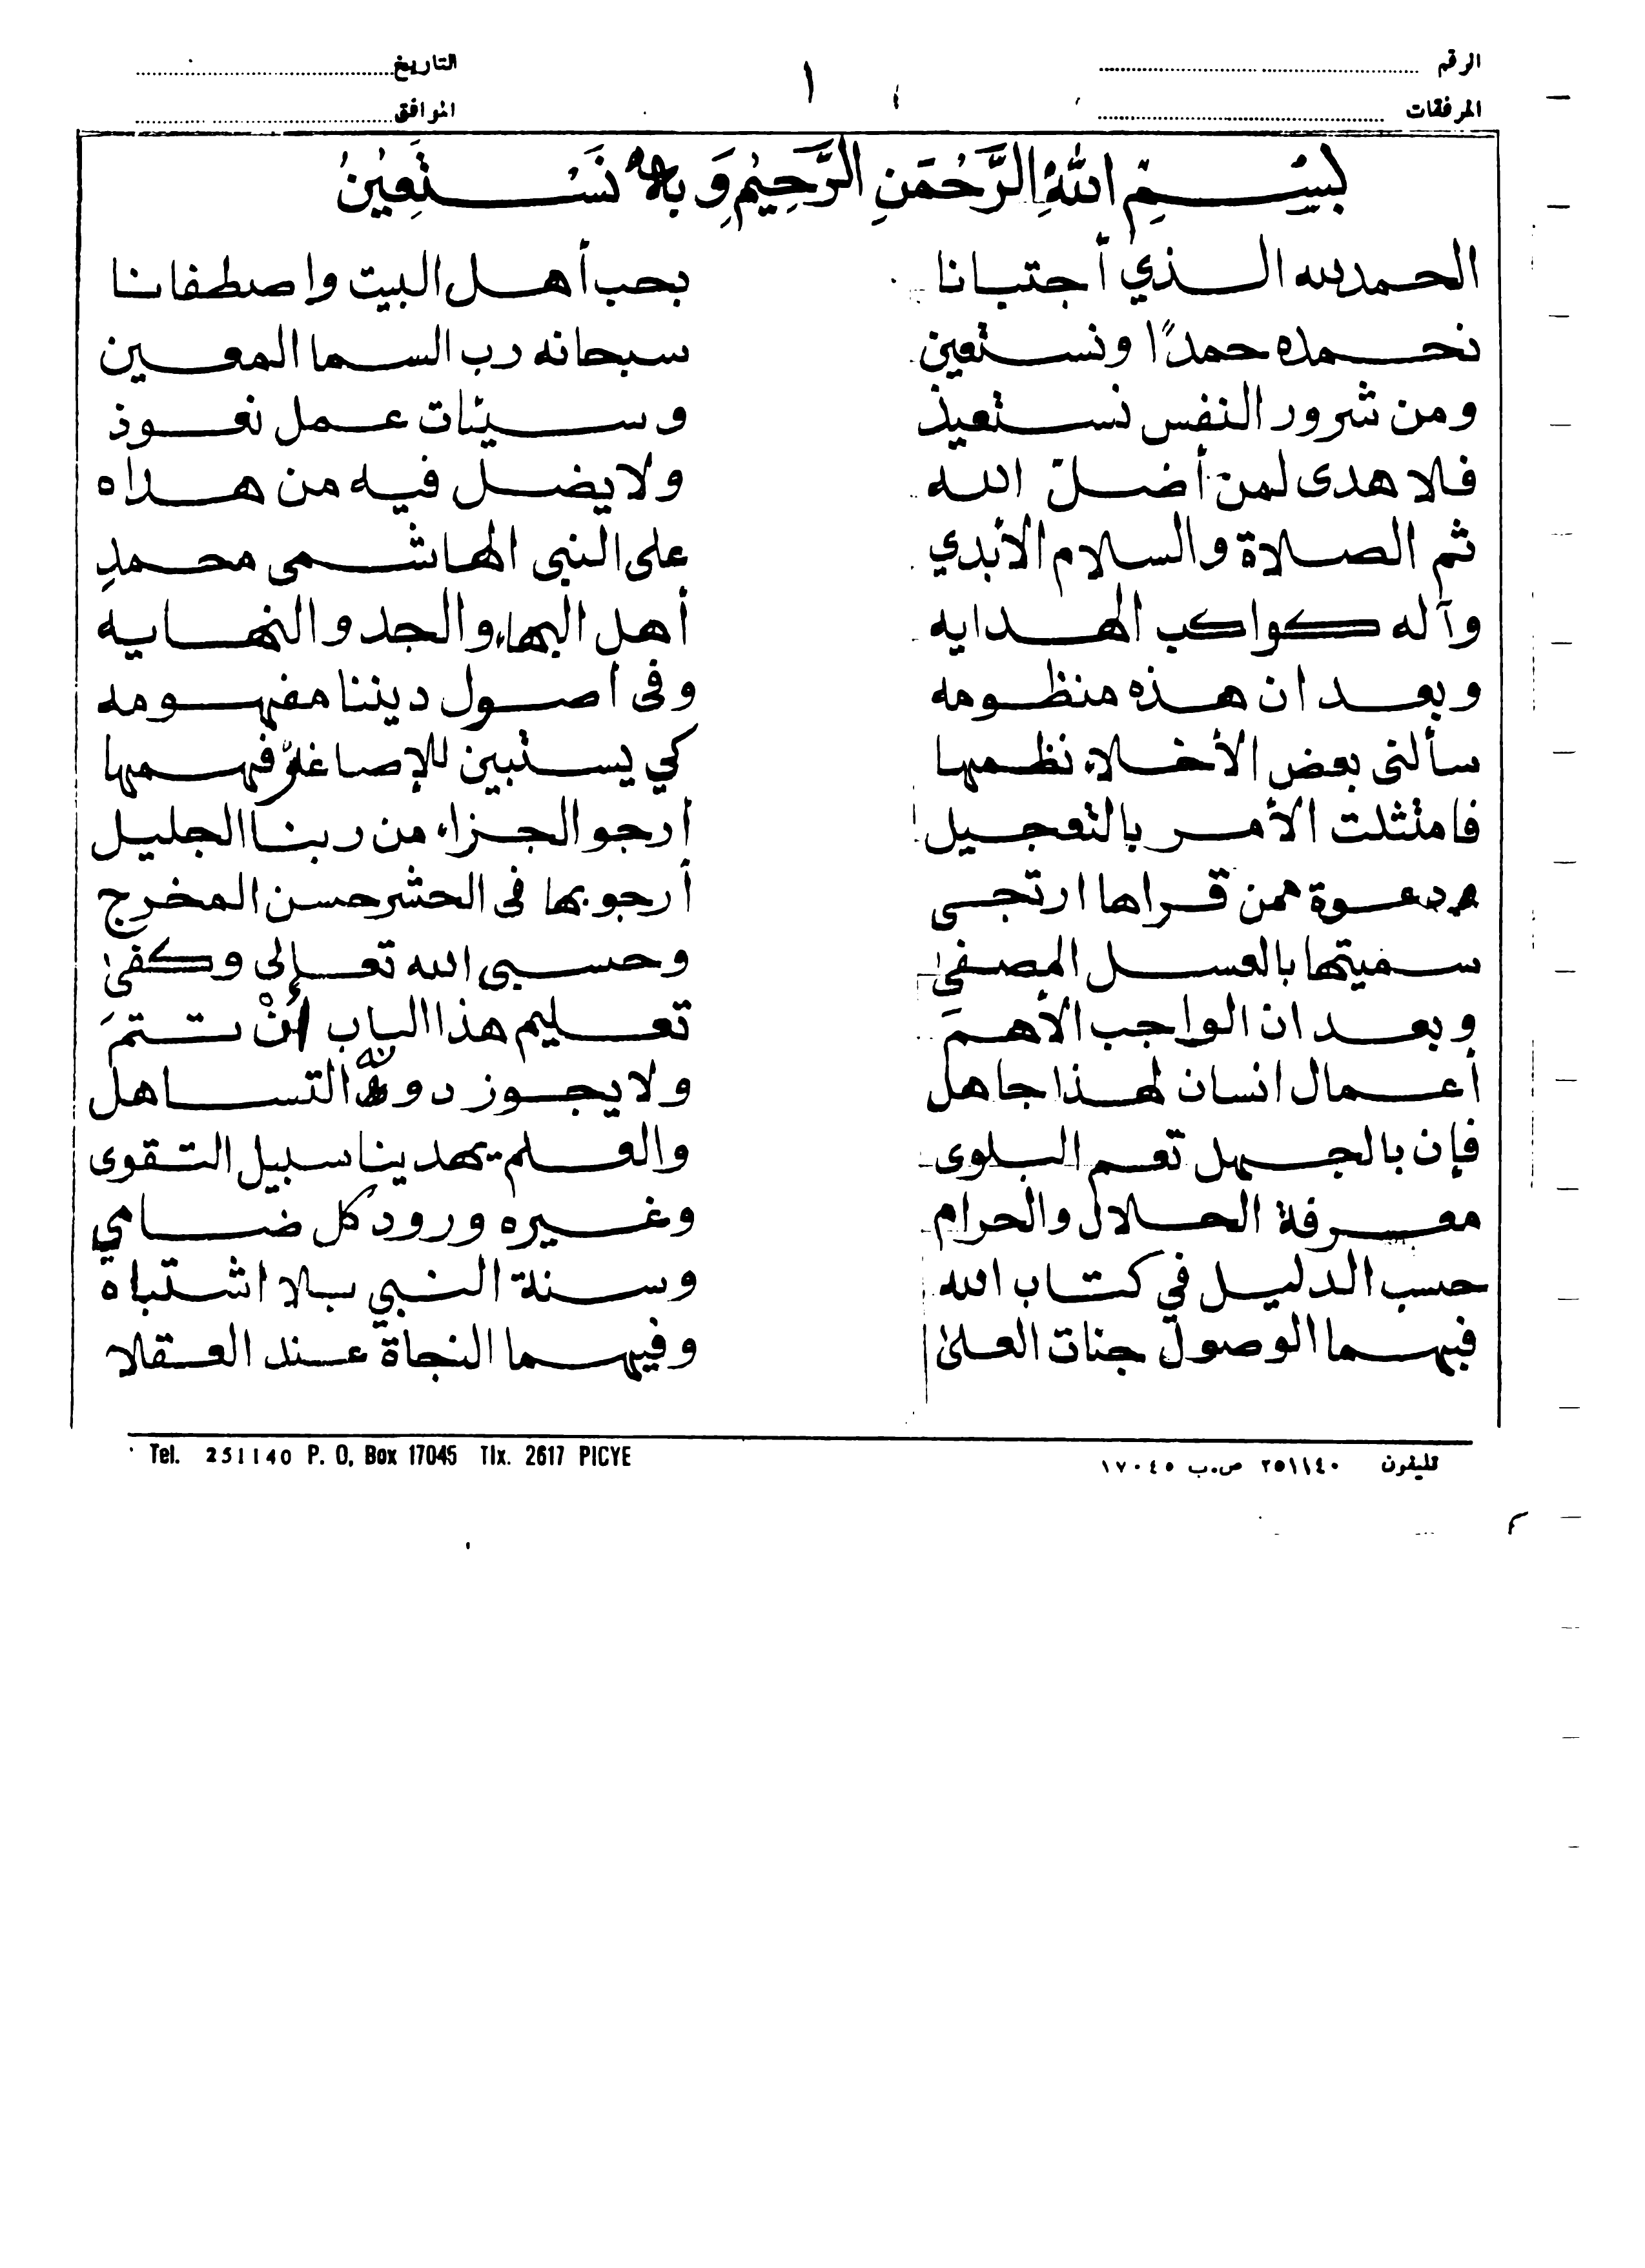 الرقم التاريخ
المرفقات الموافق
١
بِسْمِ اللهِ الرَّحْمَنِ الرَّحِيمِ وَبِهِ نَسْتَعِينُ
الحمد لله الذي أجتبانا بحب أهل البيت واصطفانا
نحمده حمدًا ونستعين سبحانه رب السما المعين
ومن شرور النفس نستعيذ وسيئات عمل نعوذ
فلا هدى لمن أضلّ الله ولا يضل فيه من هداه
ثم الصلاة والسلام الأبدي على النبي الهاشمي محمدِ
وآله كواكب الهدايه أهل البهاء والجد والنهايه
وبعد ان هذه منظومه وفى أصول ديننا مفهومه
سألنى بعض الأخلاء نظمها كي يستبين للإصاغر فهمها
فامتثلت الأمر بالتعجيل أرجو الجزاء من ربنا الجليل
ودعوة ممن قراها ارتجى أرجو بها فى الحشر حسن المخرج
سميتها بالعسل المصفىٰ وحسبى الله تعالى وكفىٰ
وبعد ان الواجب الأهمَ تعليم هذا الباب أنْ تتمَ
أعمال انسان لهذا جاهل ولا يجوز دونه التساهل
فإن بالجهل تعم البلوى والعلم يهدينا سبيل التقوى
معرفة الحلال والحرام وغيره ورود كل ضامي
حسب الدليل في كتاب الله وسنة النبي بلا اشتباه
فبهما الوصول جنات العلىٰ وفيهما النجاة عند العقلا
Tel. 251140 P. O. Box 17045 Tlx. 2617 PICYE تليفون ٢٥١١٤٠ ص.ب ١٧٠٤٥